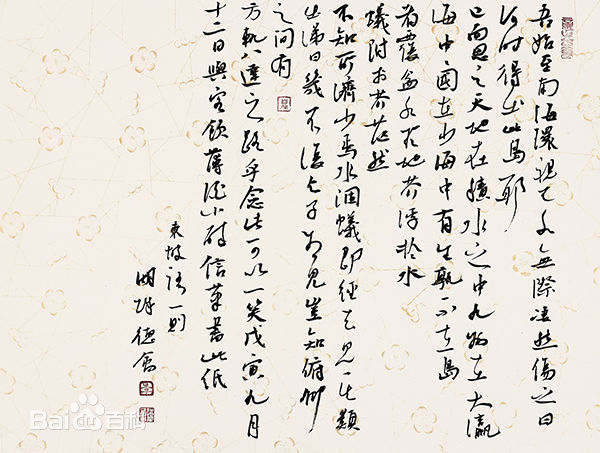 吾始至南海環視天水無際凄然傷之曰
何時得出此島耶
已而思之天地在積水之中九州在大瀛
海中國在少海中有生孰不在島
者覆盆水於地芥浮於水
蟻附於芥茫然
不知所濟少焉水涸蟻即徑去見其類
出涕曰幾不復與子相見豈知俯仰
之間有
方軌八達之路乎念此可以一笑戊寅九月
十二日與客飲薄酒小醉信筆書此紙
東坡語一則
德
Bai百科